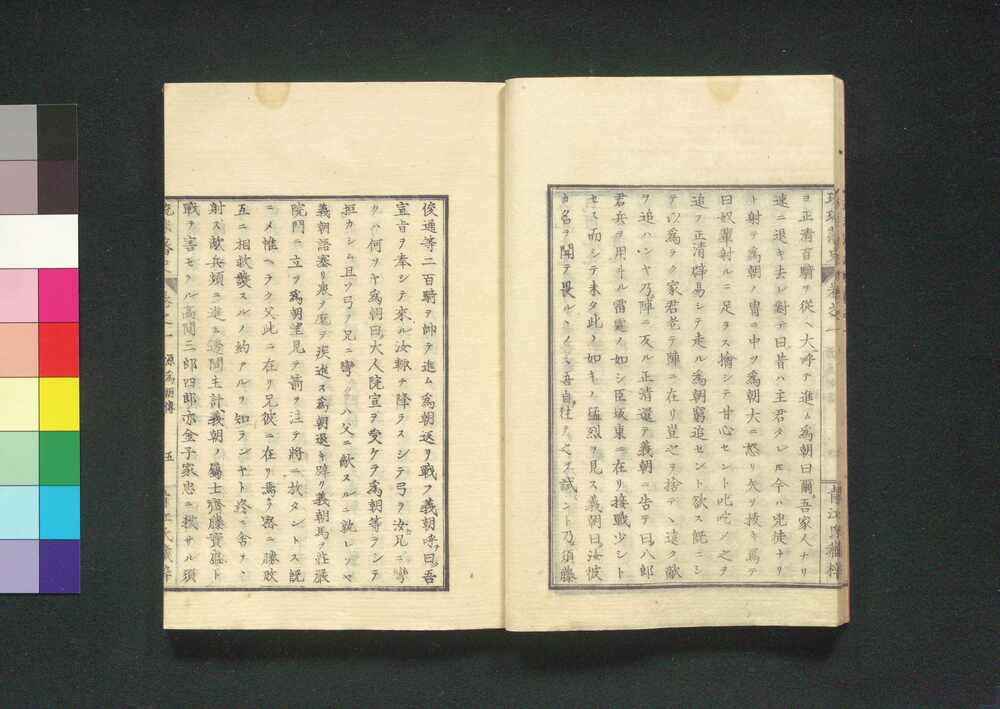 ヨ正清百騎ヲ從ヘ大呼テ進ム爲朝曰爾吾家人ナリ
速ニ退キ去レ對テ曰昔ハ主君タレ𪜈今ハ兇徒ナリ
ト射テ爲朝ノ冑ニ中ツ爲朝大ニ怒リ矢ヲ拔キ罵テ
曰奴輩射ルニ足ラス擒シテ甘心セント叱咤ノ之ヲ
追フ正清辟易シテ走ル爲朝窮追セント欲ス既ニシ
テ以爲ラク家君老テ陣ニ在リ豈之ヲ捨テヽ遠ク敵
ヲ追ハンヤ乃陣ニ反ル正清還テ義朝ニ告テ曰八郎
君兵ヲ用ヰル雷霆ノ如シ臣坂東ニ在リ接戰少シト
セス而シテ未タ此ノ如キノ猛烈ヲ見ス義朝曰汝彼
カ名ヲ聞テ畏ルヽノミ吾自往テ之ヲ試ミント乃須藤
俊通等二百騎ヲ帥テ進ム爲朝返リ戰フ義朝呼曰吾
宣旨ヲ奉シテ來ル汝輙チ降ラスシテ弓ヲ汝兄ニ彎
クハ何ソヤ爲朝曰大人院宣ヲ受ケテ爲朝等ヲシテ
拒カシム且ツ弓ヲ兄ニ彎クハ父ニ敵スルニ孰レソマ
義朝語塞リ衆ヲ麾テ疾進ス爲朝退キ躊リ義朝馬ヲ莊嚴
院門ニ立ツ爲朝望見テ箭ヲ注テ將ニ放タントス既
ニメ惟ヘラク父此ニ在リ兄彼ニ在リ焉ソ密ニ勝敗
五ニ相救ヒスルノ約アルヲ知ランヤト終ニ舍テヽ
射ス敵兵頻ニ進ム遂間主計義朝ノ屬士齋藤實盛ト
戰ヲ害セラル高間三郎四郎亦金子家忠ニ獲サル須
卷之一 源爲朝傳 五